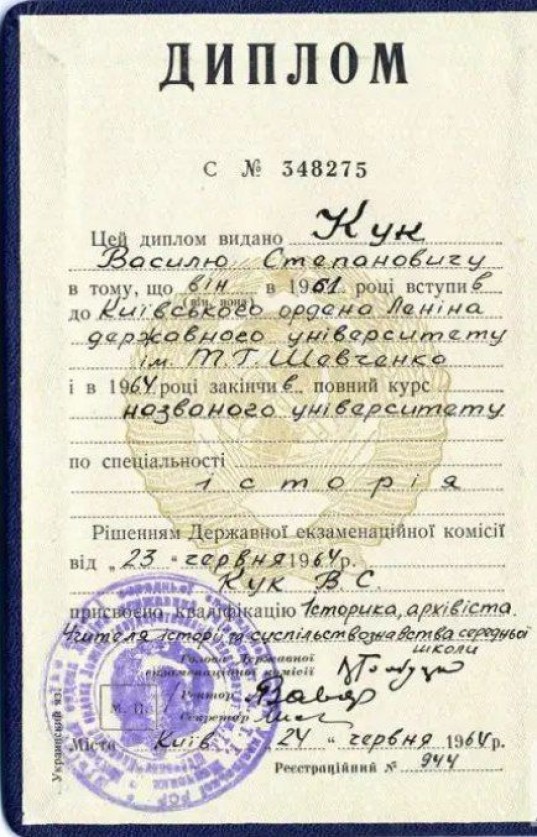 ДИПЛОМ
С № 348275
Цей диплом видано Кук
Василю Степановичу
в тому, що він в 1961 році вступив
(він, вона)
до Київського ордена Леніна
державного університету
ім. Т.Г. Шевченка
і в 1964 році закінчив повний курс
названого університету
по спеціальності
історія
Рішенням Державної екзаменаційної комісії
від „23" червня 1964 р.
Кук В. С.
присвоєно кваліфікацію Історика, архівіста.
Вчителя історії та суспільствознавства середньої
школи
Голова Державної
екзаменаційної комісії
Ректор
М. П.
Секретар
Місто Київ „24" червня 1964 р.
Реєстраційний № 944
Украинский яз.